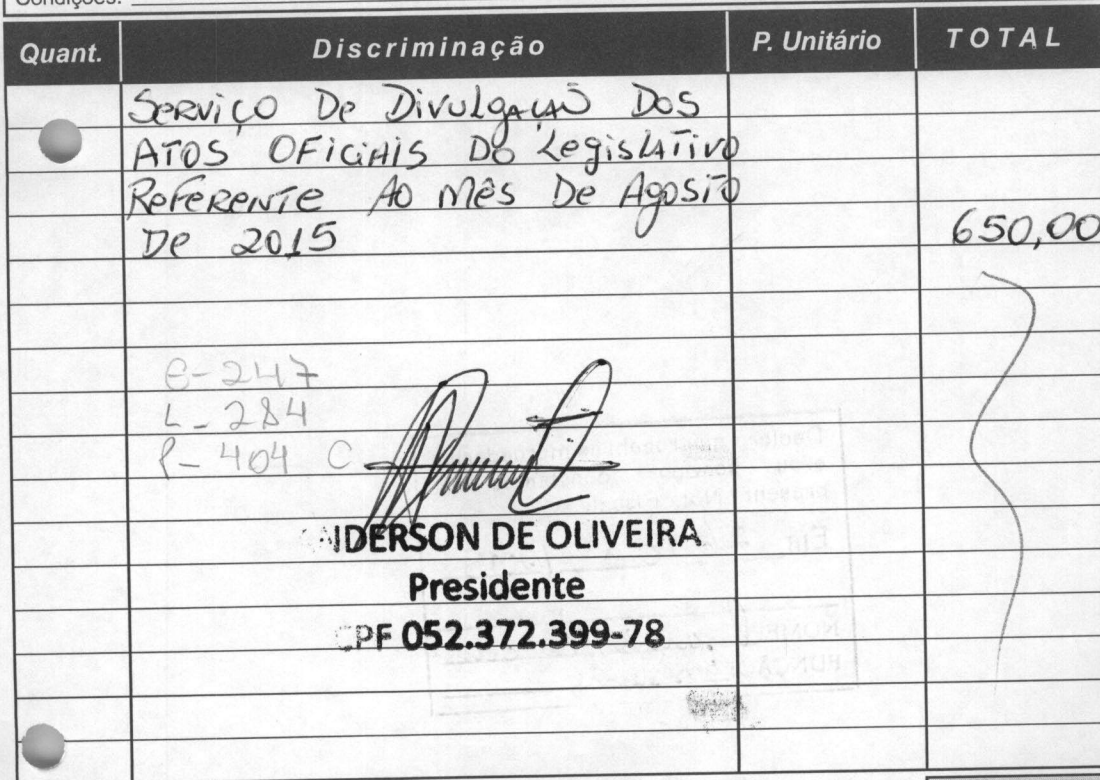 Condições:
Quant. Discriminação P. Unitário TOTAL
Serviço De Divulgação Dos
Atos Oficiais Do Legislativo
Referente Ao Mês De Agosto
De 2015 650,00
e-247
L-284
P-404
ANDERSON DE OLIVEIRA
Presidente
CPF 052.372.399-78